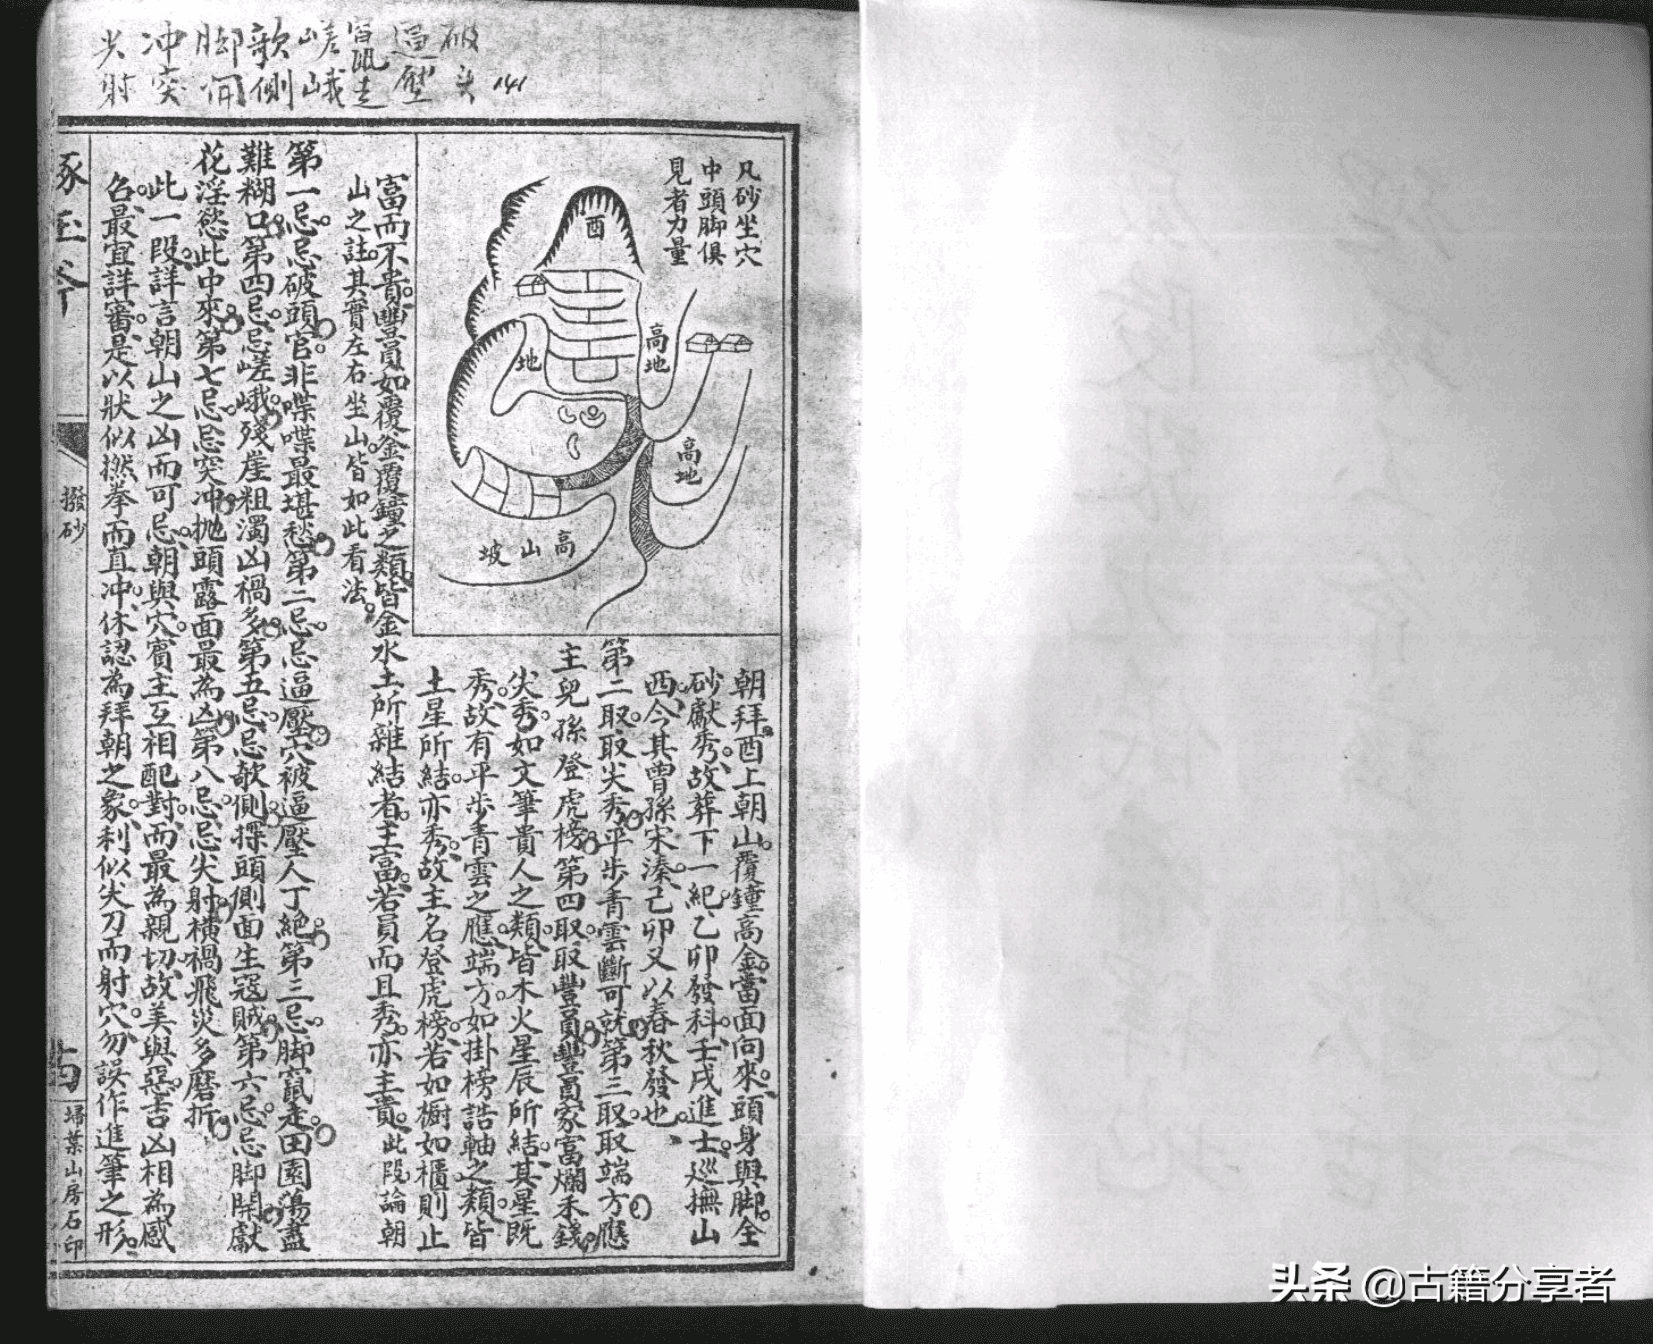 破頭
逼壓
竄走
嵯峨
欹側
脚開
冲突
尖射
141
凡砂坐穴
中頭脚俱
見者力量
酉
地
高地
高地
高山坡
朝拜酉上朝山覆鐘高金當面向來頭身與脚全
砂獻秀故葬下一紀乙卯發科壬戌進士巡撫山
西今其曾孫宋溱己卯又以春秋發也
第二取取尖秀平步青雲斷可就第三取取端方應
主兒孫登虎榜第四取取豐員豐員家富爛禾錢
尖秀如文筆貴人之類皆木火星辰所結其星既
秀故有平步青雲之應端方如掛榜誥軸之類皆
土星所結亦秀故主名登虎榜若如櫥如櫃則止
富而不貴豐員如覆金覆鐘之類皆金水土所雜結者主富若員而且秀亦主貴此段論朝
山之註其實左右坐山皆如此看法
第一忌忌破頭官非喋喋最堪愁第二忌忌逼壓穴被逼壓人丁絕第三忌脚竄走田園蕩盡
難糊口第四忌忌嵯峨殘崖粗濁凶禍多第五忌忌欹側探頭側面生寇賊第六忌忌脚開獻
花淫慾此中來第七忌忌突冲抛頭露面最為凶第八忌忌尖射橫禍飛災多磨折
此一段詳言朝山之凶而可忌朝與穴賓主互相配對而最為親切故美與惡吉凶相為感
召最宜詳審是以狀似撚拳而直冲休認為拜朝之象利似尖刀而射穴勿誤作進筆之形
撥砂
掃葉山房石印
头条 @古籍分享者